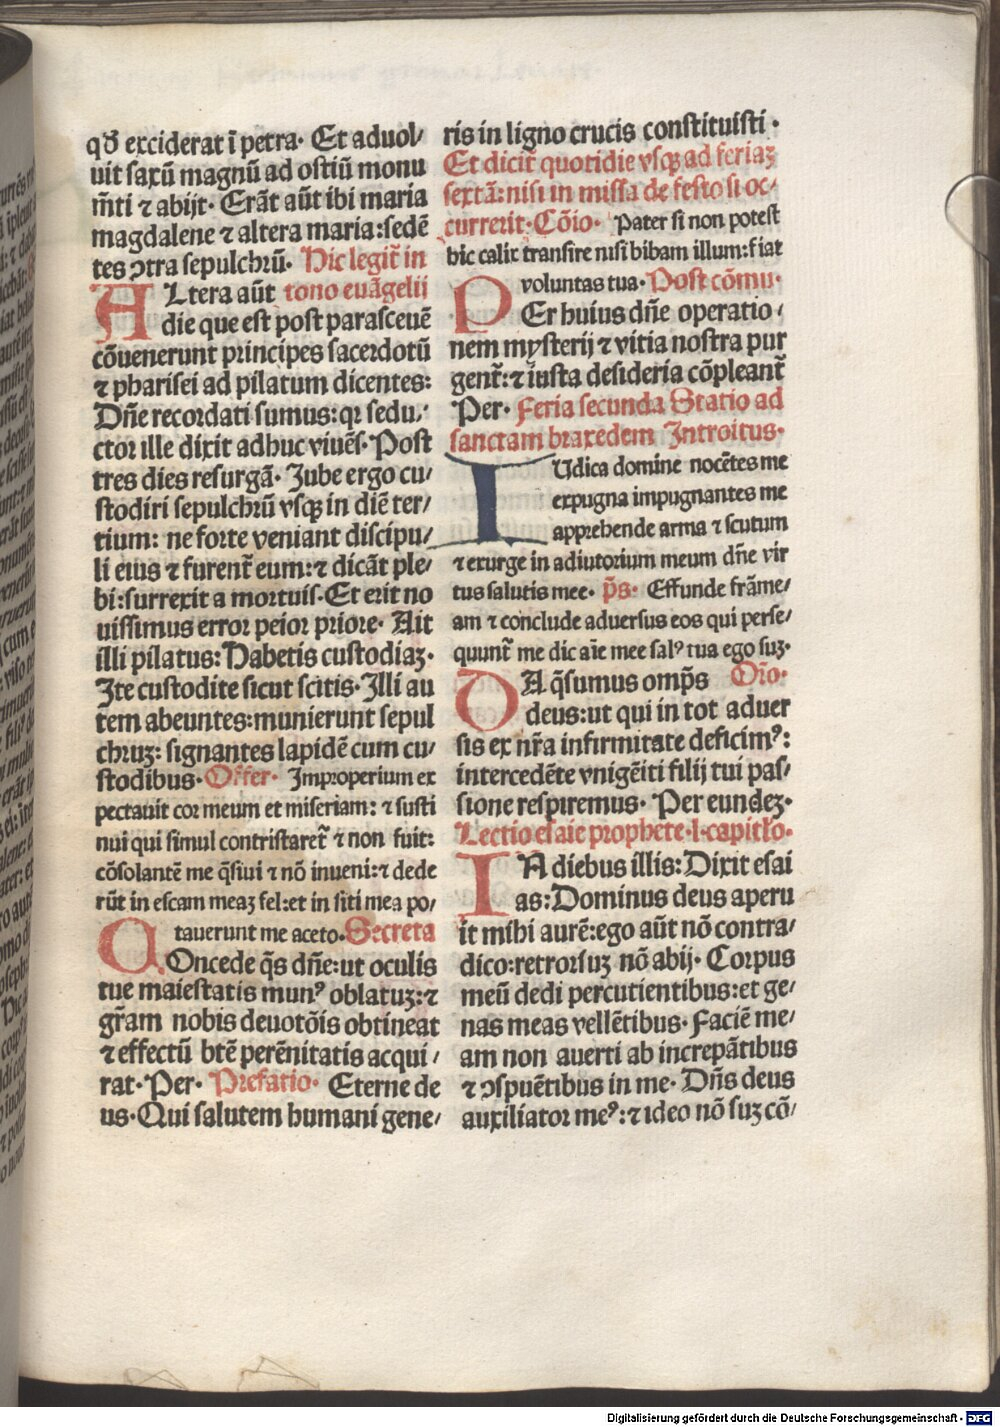 qď exciderat ĩ petra· Et aduol/
uit saxū magnū ad ostiū monu
m̄ti ⁊ abijt· Erāt aūt ibi maria
magdalene ⁊ altera maria:sedē
tes ɔtra sepulchrū· Hic legit̄ in
ALtera aūt tono euāgelii
die que est post parasceuē
cōuenerunt principes sacerdotū
⁊ pharisei ad pilatum dicentes:
Dñe recordati sumus:qꝛ sedu/
ctor ille dixit adhuc viuēs·Post
tres dies resurgā· Jube ergo cu/
stodiri sepulchrū vsqꝫ in diē ter/
tium: ne forte veniant discipu/
li eius ⁊ furent̄ eum:⁊ dicāt ple/
bi:surrexit a mortuis·Et erit no
uissimus error peior priore· Ait
illi pilatus:Habetis custodiaꝫ·
Jte custodite sicut scitis·Jlli au
tem abeuntes:munierunt sepul
chruꝫ: signantes lapidē cum cu/
stodibus·Offer· Jmproperium ex
pectauit cor meum et miseriam: ⁊ susti
nui qui simul contristaret̄ ⁊ non fuit:
cōsolantē me q̄siui ⁊ nō inueni:⁊ dede
rūt in escam meaꝫ fel:et in siti mea po/
tauerunt me aceto·Secreta
COncede q̄s dñe:ut oculis
tue maiestatis munꝰ oblatuꝫ:⁊
gr̄am nobis deuotōis obtineat
⁊ effectū btē perēnitatis acqui/
rat·Per· Prefatio· Eterne de
us·Qui salutem humani gene/
ris in ligno crucis constituisti·
Et dicit̄ quotidie vsqꝫ ad feriaꝫ
sextā:nisi in missa de festo si oc/
currerit·Cōio· Pater si non potest
hic calix transire nisi bibam illum:fiat
voluntas tua·Post cōmu·
PEr huius dñe operatio/
nem mysterij ⁊ vitia nostra pur
gent̄:⁊ iusta desideria cōpleant̄
Per· Feria secunda Statio ad
sanctam braxedem Introitus·
IUdica domine nocētes me
expugna impugnantes me
apprehende arma ⁊ scutum
⁊ exurge in adiutorium meum dñe vir
tus salutis mee· p̄s· Effunde frāme/
am ⁊ conclude aduersus eos qui perse/
quunt̄ me dic aīe mee salꝰ tua ego suꝫ·
DA q̄sumus omp̄s Orō·
deus:ut qui in tot aduer
sis ex nr̄a infirmitate deficimꝰ:
intercedēte vnigēiti filij tui pas/
sione respiremus· Per eundeꝫ·
Lectio esaie prophete·l·capitlo·
IN diebus illis:Dixit esai
as:Dominus deus aperu
it mihi aurē:ego aūt nō contra/
dico:retrorsuꝫ nō abij· Corpus
meū dedi percutientibus:et ge/
nas meas vellētibus·Faciē me/
am non auerti ab increpātibus
⁊ ɔspuētibus in me· Dñs deus
auxiliator meꝰ:⁊ ideo nō suꝫ cō/
Digitalisierung gefördert durch die Deutsche Forschungsgemeinschaft · DFG